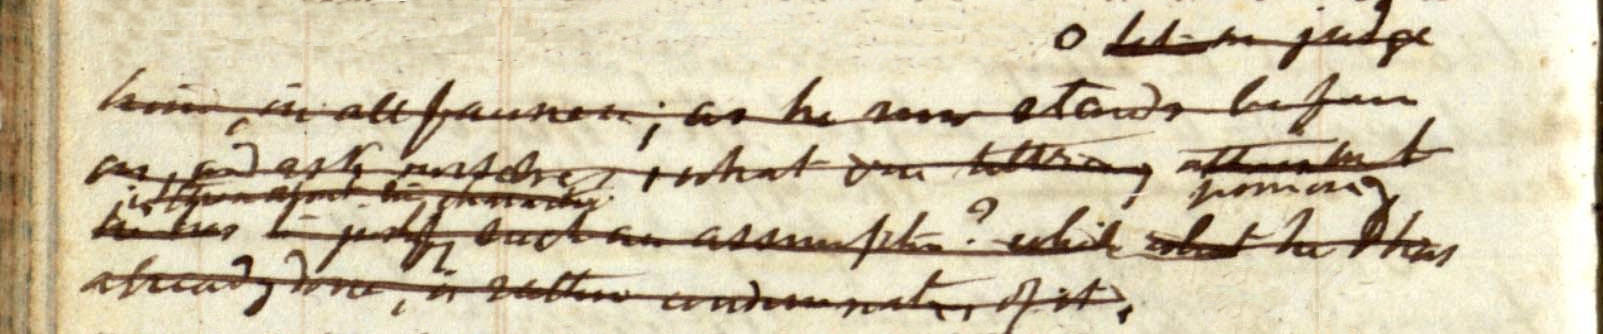 O let us judge
him, in all fairness; as he now stands before
us, and ask ourselves, what one
is there about his character promised
he has to justify such an assumption? while what he has
already done, is rather condemnatory of it.